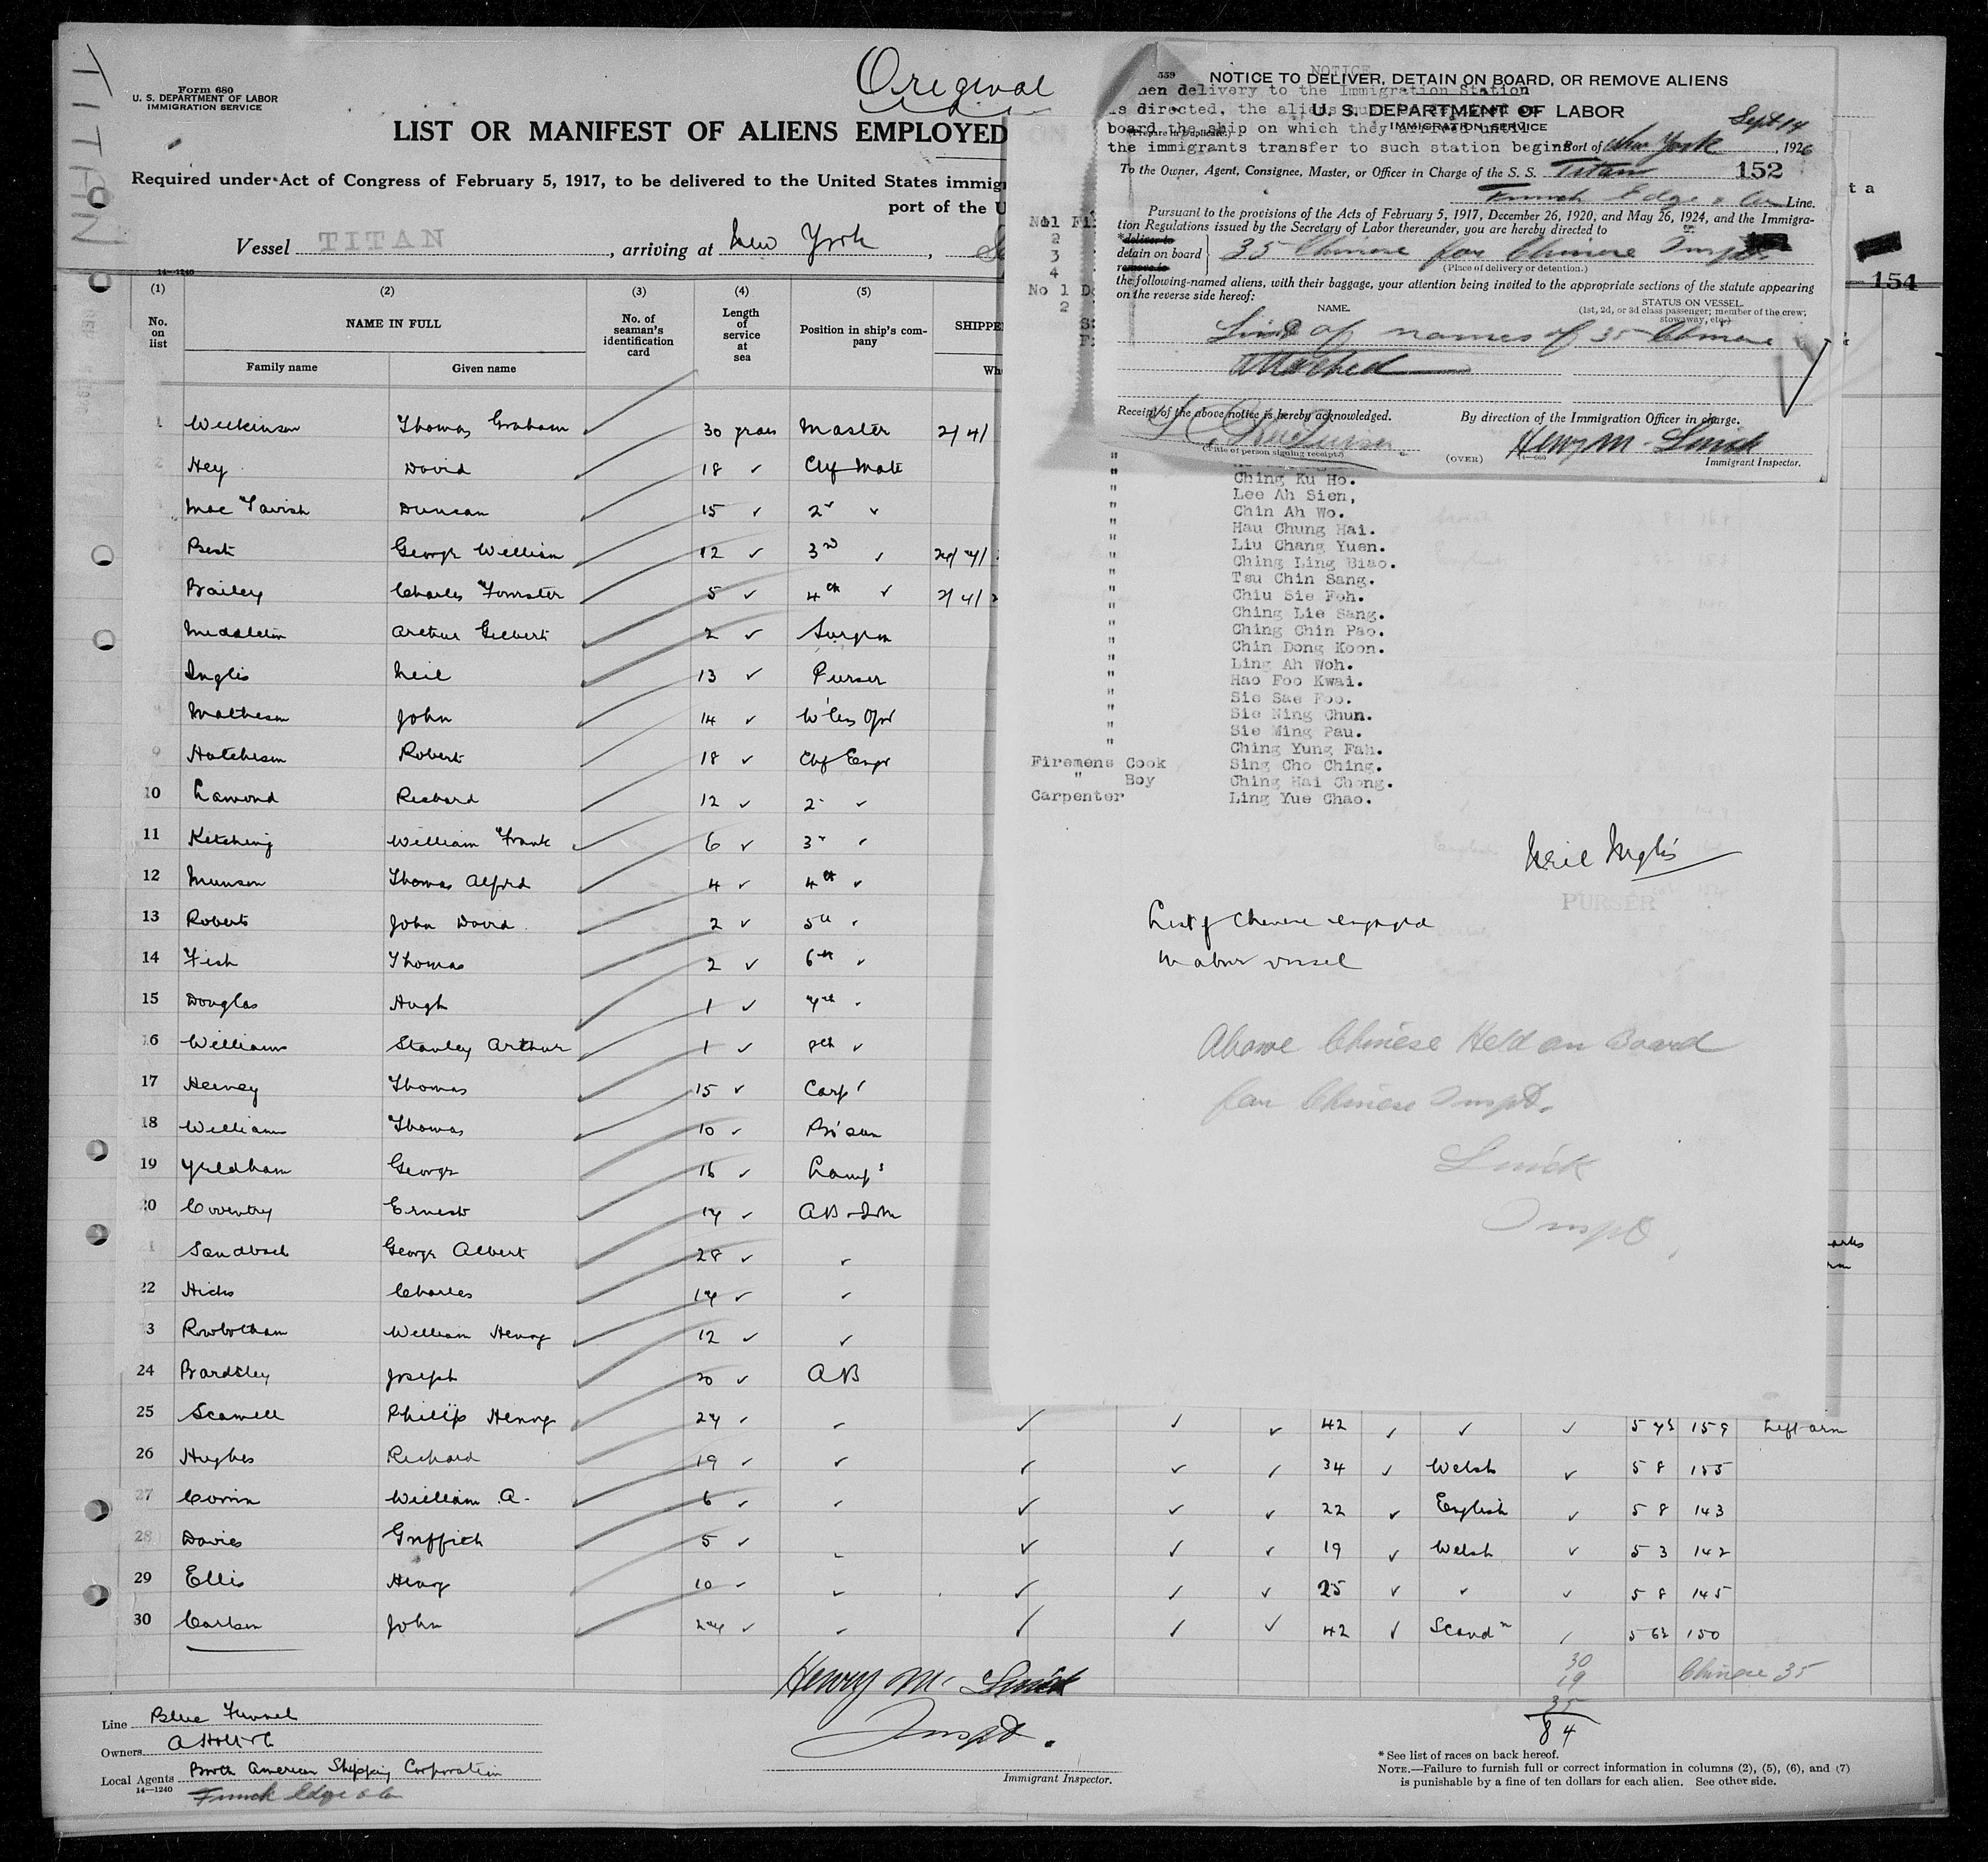 TITAN
Form 680
U. S. DEPARTMENT OF LABOR
IMMIGRATION SERVICE
Original
LIST OR MANIFEST OF ALIENS EMPLOYED
Required under Act of Congress of February 5, 1917, to be delivered to the United States immig
port of the U
Vessel TITAN, arriving at New York,
14—1240
(1) (2) (3) (4) (5)
No. on list
NAME IN FULL
Family name
Given name
No. of seaman's identification card
Length of service at sea
Position in ship's company
SHIPPE
Wh
1 Wilkinson Thomas Graham 30 years Master
2 Hey David 18 Chf Mate
Mac Tavish Duncan 15 2
Best George William 12 3rd
Bailey Charles 5 4th
Middleton Arthur Gilbert 2 Surgeon
Inglis Neil 13 Purser
Matheson John 14 W'less Opr
9 Hutcheson Robert 18 Chf Engr
10 Lamond Richard 12 2
11 Ketching William Frank 6 3
12 Munson Thomas Alfred 4 4th
13 Roberts John David 2 5th
14 Fish Thomas 2 6th
15 Douglas Hugh 1 7th
16 Williams Stanley Arthur 1 8th
17 Hervey Thomas 15 Carp
18 Williams Thomas 10 Bo'sun
19 Yeldham George 16 Lamps
20 Coventry Ernest 14
Sandbach George Albert 28
22 Hicks Charles 14
3 Rowbotham William Henry 12
24 Bardsley Joseph 20 AB
25 Scamell Phillip Henry 24 42 159 Left arm
26 Hughes Richard 19 34 Welsh 5 8 155
27 Corrin William A. 6 22 English 5 8 143
28 Davies Griffith 5 19 Welsh 5 3 142
29 Ellis Henry 10 25 5 8 145
30 Carlson John 24 42 Scandn 150
30
19
35
84
Chinese 35
Henry M. Smick
Inspt.
Immigrant Inspector.
Line Blue Funnel
Owners A Holt & Co
Local Agents Booth American Shipping Corporation
14—1240
Funch Edge & Co
* See list of races on back hereof.
NOTE.—Failure to furnish full or correct information in columns (2), (5), (6), and (7)
is punishable by a fine of ten dollars for each alien. See other side.
559
NOTICE
NOTICE TO DELIVER, DETAIN ON BOARD, OR REMOVE ALIENS
U. S. DEPARTMENT OF LABOR
IMMIGRATION SERVICE
(Prepare in Duplicate)
hen delivery to the Immigration Station
is directed, the aliens
board the ship on which they arrived until
the immigrants transfer to such station begins
Port of New York Sept 14, 1926
To the Owner, Agent, Consignee, Master, or Officer in Charge of the S. S. Titan 152
Funch Edge & Co Line.
Pursuant to the provisions of the Acts of February 5, 1917, December 26, 1920, and May 26, 1924, and the Immigra-
tion Regulations issued by the Secretary of Labor thereunder, you are hereby directed to
*deliver to
detain on board
remove to
35 Chinese for Chinese Inspt.
(Place of delivery or detention.)
the following-named aliens, with their baggage, your attention being invited to the appropriate sections of the statute appearing
on the reverse side hereof:
NAME.
STATUS ON VESSEL.
(1st, 2d, or 3d class passenger; member of the crew;
stowaway, etc.)
List of names of 35 Chinese
attached
Receipt of the above notice is hereby acknowledged.
By direction of the Immigration Officer in charge.
Purser
(Title of person signing receipt.)
(OVER)
Henry M. Smick
14—660
Immigrant Inspector.
t a
154
No1 Fi
2
3
4
No 1 D
2
S
F
" Ching Ku Ho.
" Lee Ah Sien,
" Chin Ah Wo.
" Hau Chung Hai.
" Liu Chang Yuen.
" Ching Ling Biao.
" Tsu Chin Sang.
" Chiu Sie Foh.
" Ching Lie Sang.
" Ching Chin Pao.
" Chin Dong Koon.
" Ling Ah Woh.
" Hao Foo Kwai.
" Sie Sae Foo.
" Sie Ning Chun.
" Sie Ming Pau.
" Ching Yung Fah.
Firemens Cook Sing Cho Ching.
" Boy Ching Hai Chong.
Carpenter Ling Yue Chao.
Neil Inglis
PURSER
List of Chinese engaged
in above vessel
Above Chinese Held on Board
for Chinese Inspt.
Smick
Inspt.